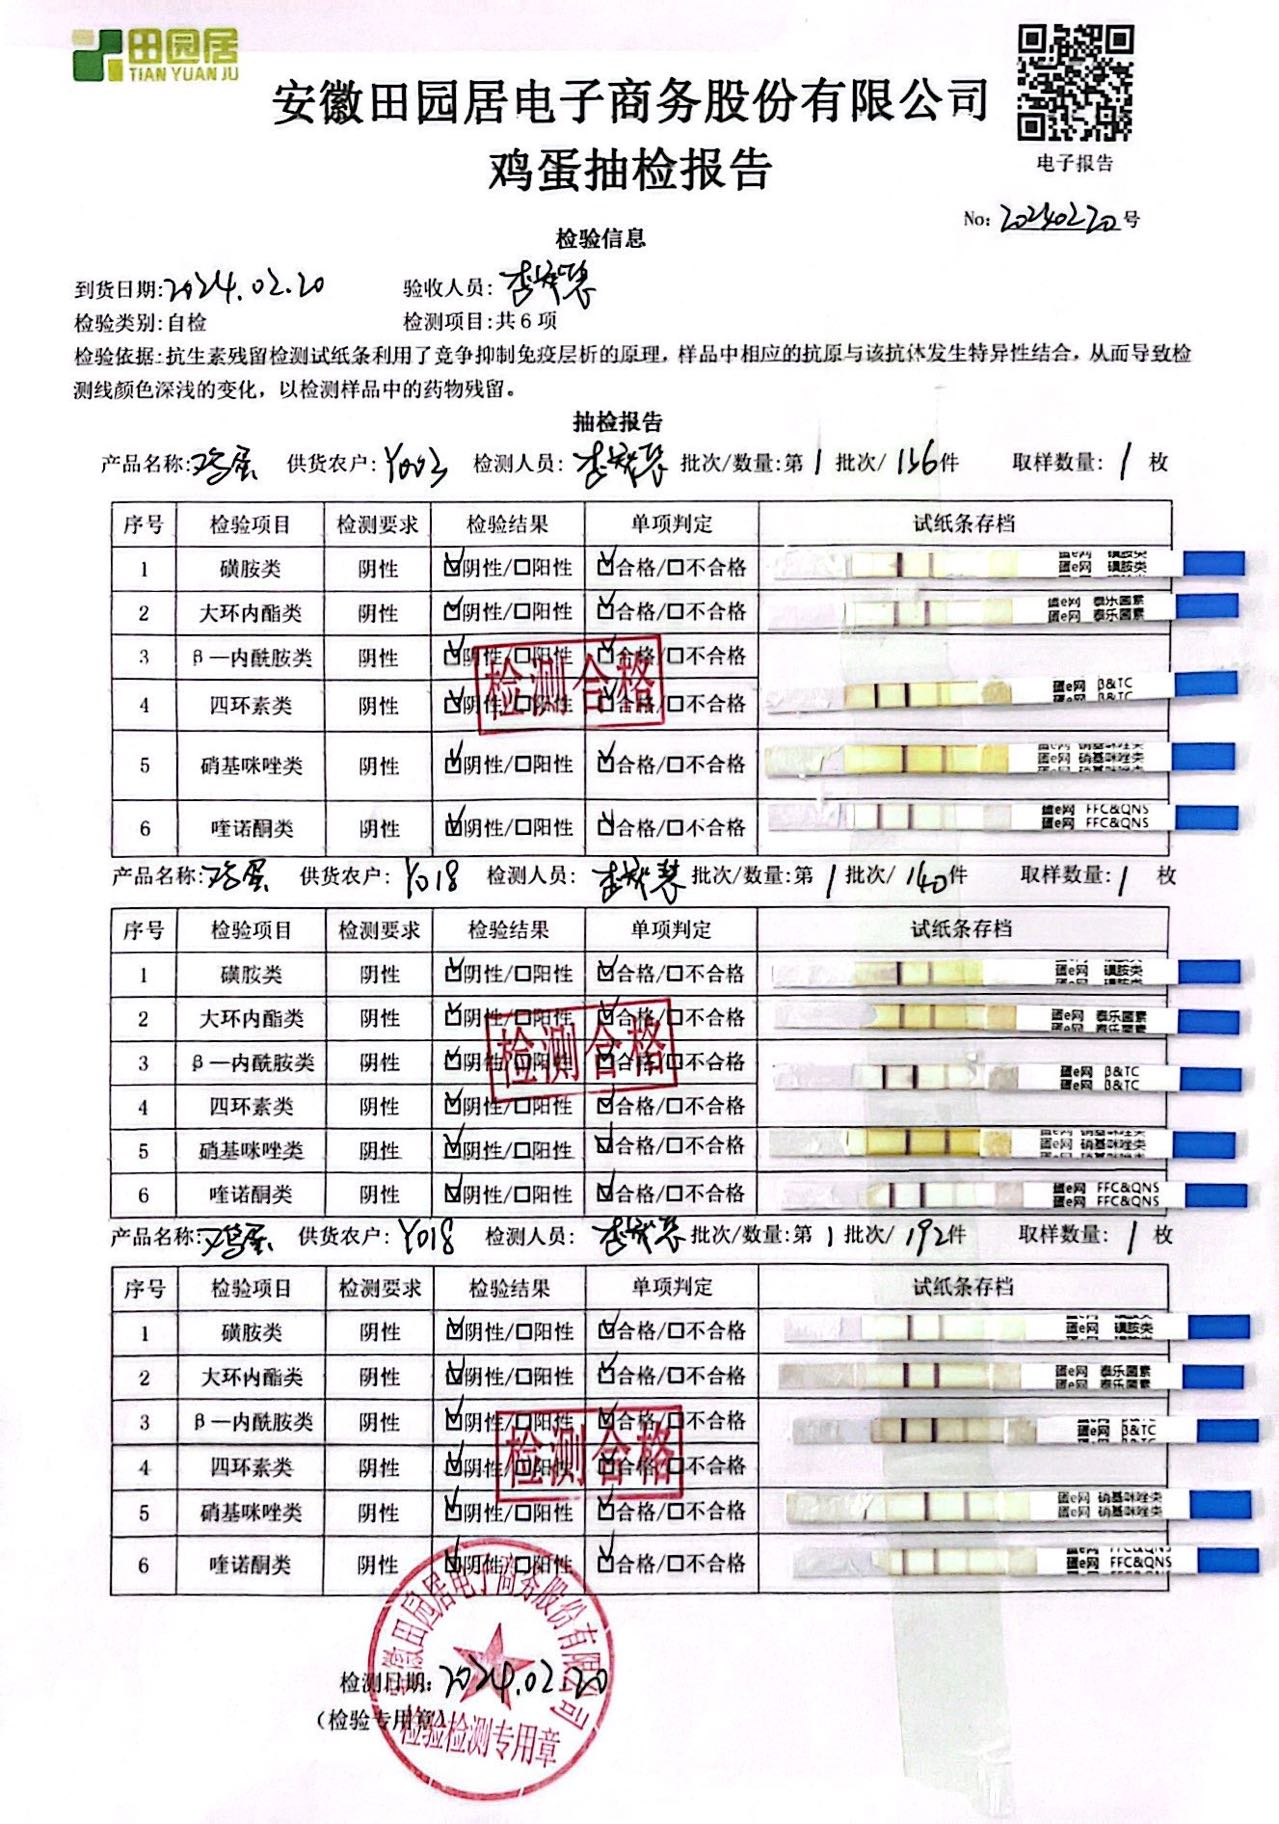 田园居
TIAN YUAN JU
安徽田园居电子商务股份有限公司
鸡蛋抽检报告
电子报告
No: 20240220 号
检验信息
到货日期:2024.02.20 验收人员:
检验类别:自检 检测项目:共6项
检验依据:抗生素残留检测试纸条利用了竞争抑制免疫层析的原理,样品中相应的抗原与该抗体发生特异性结合,从而导致检
测线颜色深浅的变化,以检测样品中的药物残留。
抽检报告
产品名称:鸡蛋 供货农户:Y003 检测人员: 批次/数量:第1批次/156件 取样数量:1枚
序号 检验项目 检测要求 检验结果 单项判定 试纸条存档
1 磺胺类 阴性 ☑阴性/☐阳性 ☑合格/☐不合格 蛋e网 磺胺类
2 大环内酯类 阴性 ☑阴性/☐阳性 ☑合格/☐不合格 蛋e网 泰乐菌素
3 β—内酰胺类 阴性 ☑阴性/☐阳性 ☑合格/☐不合格
4 四环素类 阴性 ☑阴性/☐阳性 ☑合格/☐不合格 蛋e网 β&TC
检测合格
5 硝基咪唑类 阴性 ☑阴性/☐阳性 ☑合格/☐不合格 蛋e网 硝基咪唑类
6 喹诺酮类 阴性 ☑阴性/☐阳性 ☑合格/☐不合格 蛋e网 FFC&QNS
产品名称:鸡蛋 供货农户:Y018 检测人员: 批次/数量:第1批次/140件 取样数量:1枚
序号 检验项目 检测要求 检验结果 单项判定 试纸条存档
1 磺胺类 阴性 ☑阴性/☐阳性 ☑合格/☐不合格 蛋e网 磺胺类
2 大环内酯类 阴性 ☑阴性/☐阳性 ☑合格/☐不合格 蛋e网 泰乐菌素
3 β—内酰胺类 阴性 ☑阴性/☐阳性 ☑合格/☐不合格 蛋e网 β&TC
检测合格
4 四环素类 阴性 ☑阴性/☐阳性 ☑合格/☐不合格
5 硝基咪唑类 阴性 ☑阴性/☐阳性 ☑合格/☐不合格 蛋e网 硝基咪唑类
6 喹诺酮类 阴性 ☑阴性/☐阳性 ☑合格/☐不合格 蛋e网 FFC&QNS
产品名称:鸡蛋 供货农户:Y018 检测人员: 批次/数量:第1批次/192件 取样数量:1枚
序号 检验项目 检测要求 检验结果 单项判定 试纸条存档
1 磺胺类 阴性 ☑阴性/☐阳性 ☑合格/☐不合格 蛋e网 磺胺类
2 大环内酯类 阴性 ☑阴性/☐阳性 ☑合格/☐不合格 蛋e网 泰乐菌素
3 β—内酰胺类 阴性 ☑阴性/☐阳性 ☑合格/☐不合格 蛋e网 β&TC
检测合格
4 四环素类 阴性 ☑阴性/☐阳性 ☑合格/☐不合格
5 硝基咪唑类 阴性 ☑阴性/☐阳性 ☑合格/☐不合格 蛋e网 硝基咪唑类
6 喹诺酮类 阴性 ☑阴性/☐阳性 ☑合格/☐不合格 蛋e网 FFC&QNS
安徽田园居电子商务股份有限公司
检测日期:2024.02.20
(检验专用章)
检验检测专用章